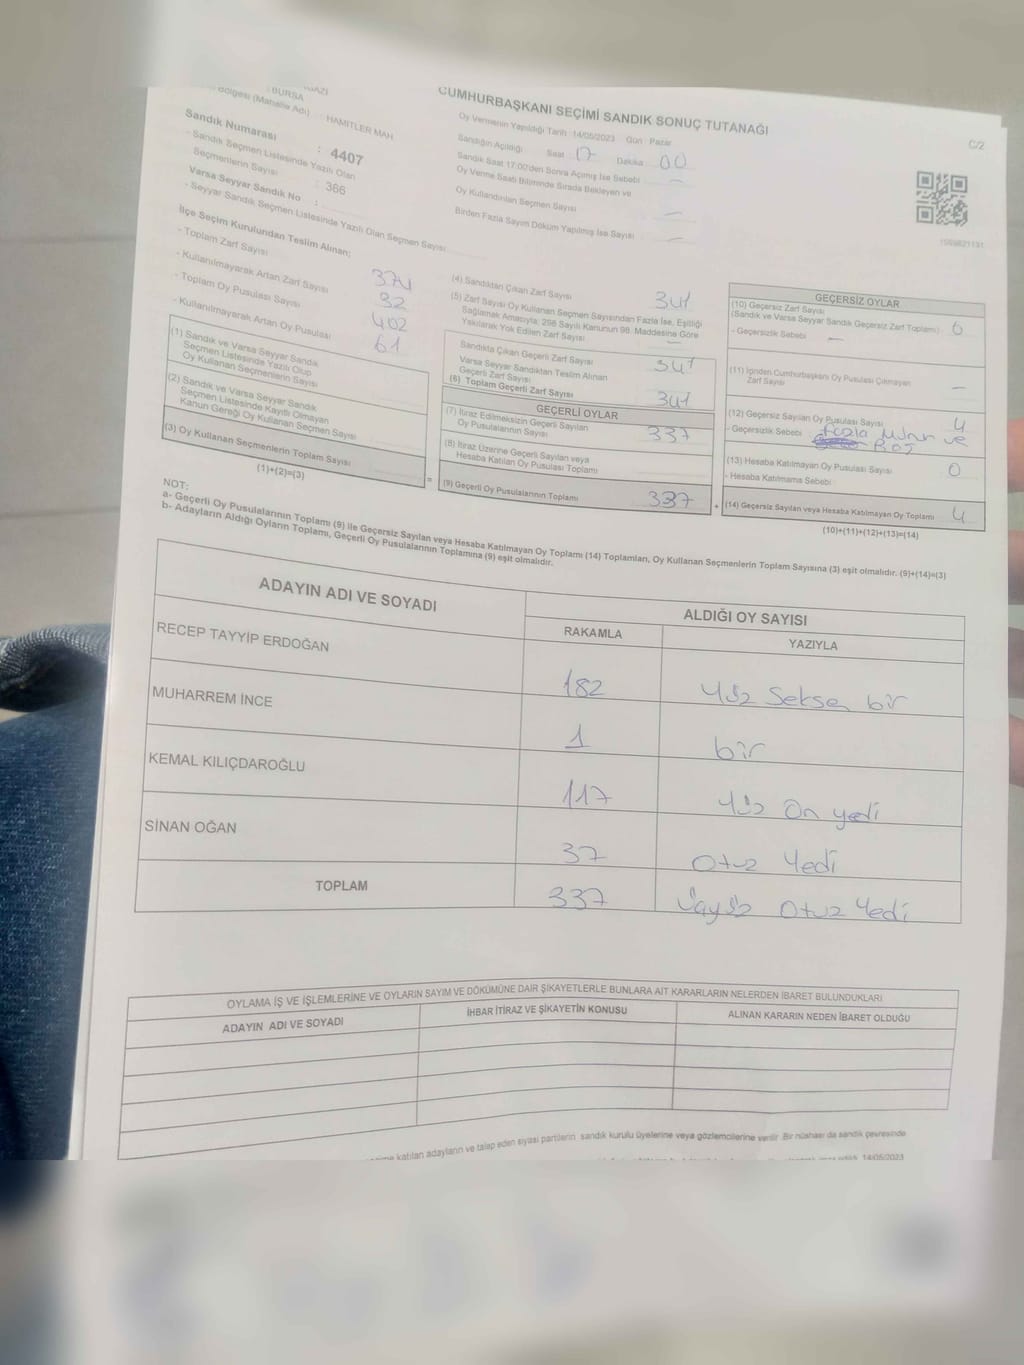 CUMHURBAŞKANI SEÇİMİ SANDIK SONUÇ TUTANAĞI
C/2
: BURSA
Bölgesi (Mahalle Adı) : HAMİTLER MAH
Sandık Numarası : 4407
- Sandık Seçmen Listesinde Yazılı Olan
Seçmenlerin Sayısı : 366
Varsa Seyyar Sandık No :
- Seyyar Sandık Seçmen Listesinde Yazılı Olan Seçmen Sayısı
Oy Vermenin Yapıldığı Tarih : 14/05/2023 Gün : Pazar
Sandığın Açıldığı Saat 17 Dakika 00
Sandık Saat 17:00'den Sonra Açılmış İse Sebebi —
Oy Verme Saati Bitiminde Sırada Bekleyen ve
Oy Kullandırılan Seçmen Sayısı —
Birden Fazla Sayım Döküm Yapılmış İse Sayısı —
İlçe Seçim Kurulundan Teslim Alınan;
- Toplam Zarf Sayısı
- Kullanılmayarak Artan Zarf Sayısı 32
- Toplam Oy Pusulası Sayısı 402
- Kullanılmayarak Artan Oy Pusulası 61
(1) Sandık ve Varsa Seyyar Sandık
Seçmen Listesinde Yazılı Olup
Oy Kullanan Seçmenlerin Sayısı
(2) Sandık ve Varsa Seyyar Sandık
Seçmen Listesinde Kayıtlı Olmayan
Kanun Gereği Oy Kullanan Seçmen Sayısı
(3) Oy Kullanan Seçmenlerin Toplam Sayısı
(1)+(2)=(3)
=
(4) Sandıktan Çıkan Zarf Sayısı 341
(5) Zarf Sayısı Oy Kullanan Seçmen Sayısından Fazla İse, Eşitliği
Sağlamak Amacıyla; 298 Sayılı Kanunun 98. Maddesine Göre
Yakılarak Yok Edilen Zarf Sayısı —
Sandıkta Çıkan Geçerli Zarf Sayısı 341
Varsa Seyyar Sandıktan Teslim Alınan
Geçerli Zarf Sayısı
(6) Toplam Geçerli Zarf Sayısı 341
GEÇERLİ OYLAR
(7) İtiraz Edilmeksizin Geçerli Sayılan
Oy Pusulalarının Sayısı 337
(8) İtiraz Üzerine Geçerli Sayılan veya
Hesaba Katılan Oy Pusulası Toplamı
(9) Geçerli Oy Pusulalarının Toplamı 337
+
GEÇERSİZ OYLAR
(10) Geçersiz Zarf Sayısı
(Sandık ve Varsa Seyyar Sandık Geçersiz Zarf Toplamı) : 0
- Geçersizlik Sebebi : —
(11) İçinden Cumhurbaşkanı Oy Pusulası Çıkmayan
Zarf Sayısı —
(12) Geçersiz Sayılan Oy Pusulası Sayısı 4
- Geçersizlik Sebebi : Fazla Mühür ve
Boş
(13) Hesaba Katılmayan Oy Pusulası Sayısı 0
- Hesaba Katılmama Sebebi :
(14) Geçersiz Sayılan veya Hesaba Katılmayan Oy Toplamı 4
(10)+(11)+(12)+(13)=(14)
NOT:
a- Geçerli Oy Pusulalarının Toplamı (9) ile Geçersiz Sayılan veya Hesaba Katılmayan Oy Toplamı (14) Toplamları, Oy Kullanan Seçmenlerin Toplam Sayısına (3) eşit olmalıdır. (9)+(14)=(3)
b- Adayların Aldığı Oyların Toplamı, Geçerli Oy Pusulalarının Toplamına (9) eşit olmalıdır.
ADAYIN ADI VE SOYADI
ALDIĞI OY SAYISI
RAKAMLA YAZIYLA
RECEP TAYYİP ERDOĞAN 182 Yüz Seksen bir
MUHARREM İNCE 1 bir
KEMAL KILIÇDAROĞLU 117 Yüz On yedi
SİNAN OĞAN 37 Otuz Yedi
TOPLAM 337 Üçyüz Otuz Yedi
OYLAMA İŞ VE İŞLEMLERİNE VE OYLARIN SAYIM VE DÖKÜMÜNE DAİR ŞİKAYETLERLE BUNLARA AİT KARARLARIN NELERDEN İBARET BULUNDUKLARI
ADAYIN ADI VE SOYADI İHBAR İTİRAZ VE ŞİKAYETİN KONUSU ALINAN KARARIN NEDEN İBARET OLDUĞU
katılan adayların ve talep eden siyasi partilerin sandık kurulu üyelerine veya gözlemcilerine verilir. Bir nüshası da sandık çevresinde
14/05/2023